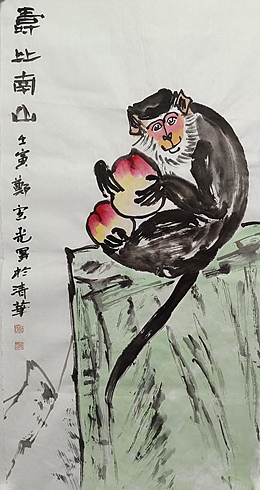 壽比南山
壬寅鄭玄光寫於清華